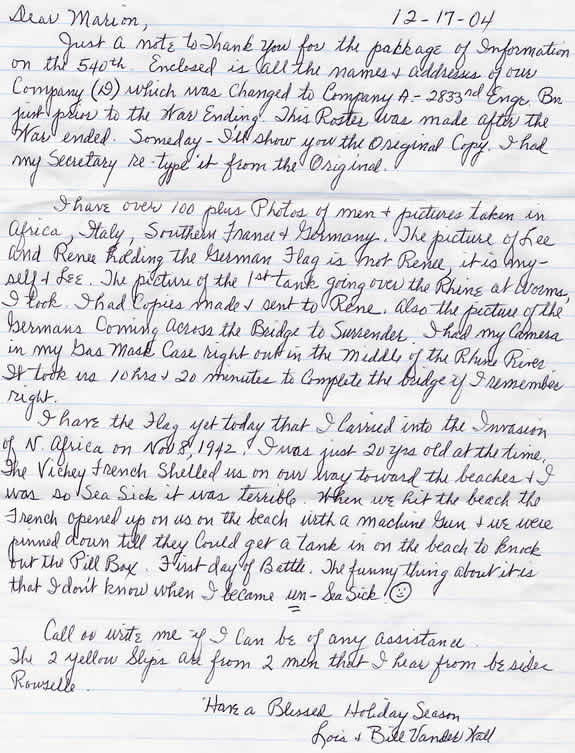 Dear Marion, 12-17-04
Just a note to Thank you for the package of Information
on the 540th. Enclosed is all the names & addresses of our
Company (D) which was changed to Company A - 2833rd Engr. Bn
just prior to the War Ending. This Roster was made after the
War ended. Someday - I'll show you the Original Copy. I had
my Secretary re-type it from the Original.
I have over 100 plus Photos of men & pictures taken in
Africa, Italy, Southern France & Germany. The picture of Lee
and Renee holding the German Flag is not Renee, it is my-
self & Lee. The picture of the 1st tank going over the Rhine at Worms,
I took. I had Copies made & sent to Rene. Also the picture of the
Germans Coming Across the Bridge to Surrender. I had my Camera
in my Gas Mask Case right out in the Middle of the Rhine River
It took us 10 hrs & 20 minutes to Complete the bridge if I remember
right.
I have the Flag yet today that I Carried into the Invasion
of N. Africa on Nov 8, 1942. I was just 20 yrs old at the time.
The Vichey French Shelled us on our way toward the beaches & I
was so Sea Sick it was terrible. When we hit the beach the
French opened up on us on the beach with a machine Gun & we were
pinned down till they Could get a tank in on the beach to knock
out the Pill Box. First day of Battle. The funny thing about it is
that I don't know when I became un-Sea Sick!
Call or write me if I can be of any assistance.
The 2 yellow Slips are from 2 men that I hear from besides
Rowselle.
Have a Blessed Holiday Season
Lois & Bill Vander Wall